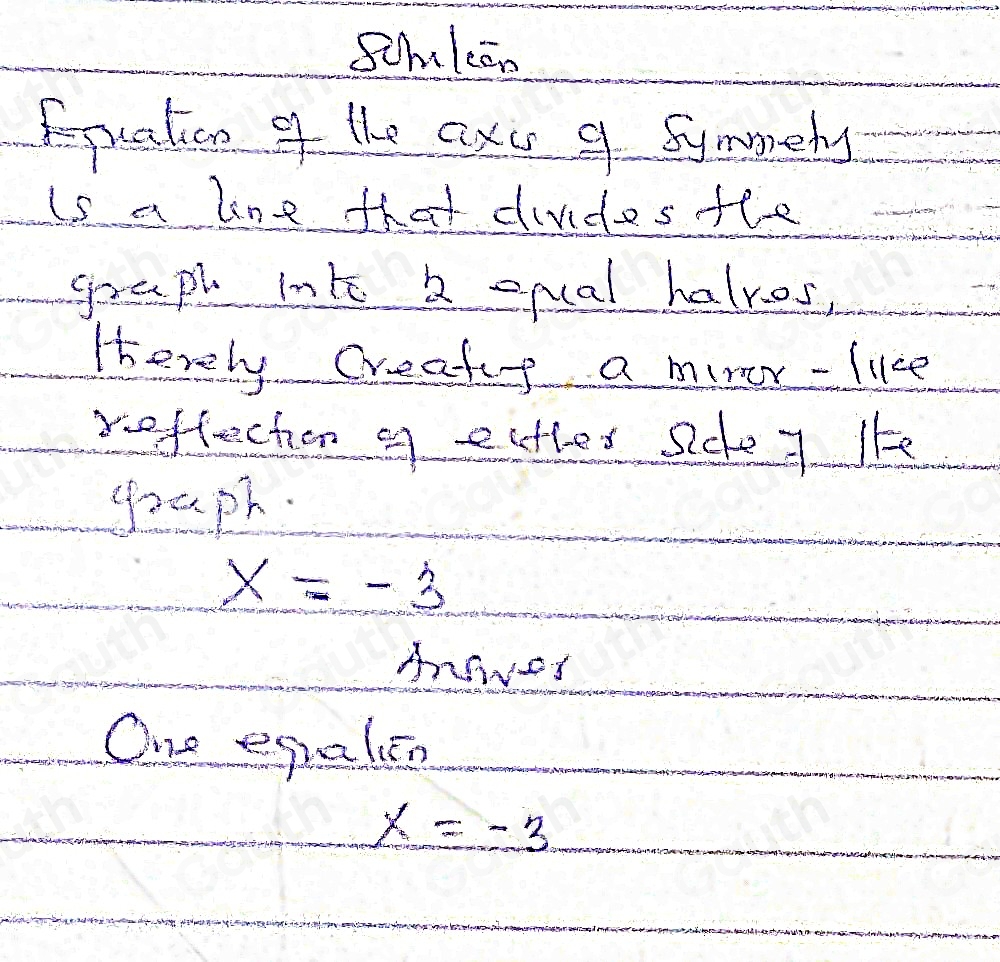 Solution
Equation of the axis of symmetry
is a line that divides the
graph into 2 equal halves,
thereby Creating a mirror-like
reflection of either side of the
graph.
X = -3
Answer
One equation
X = -3